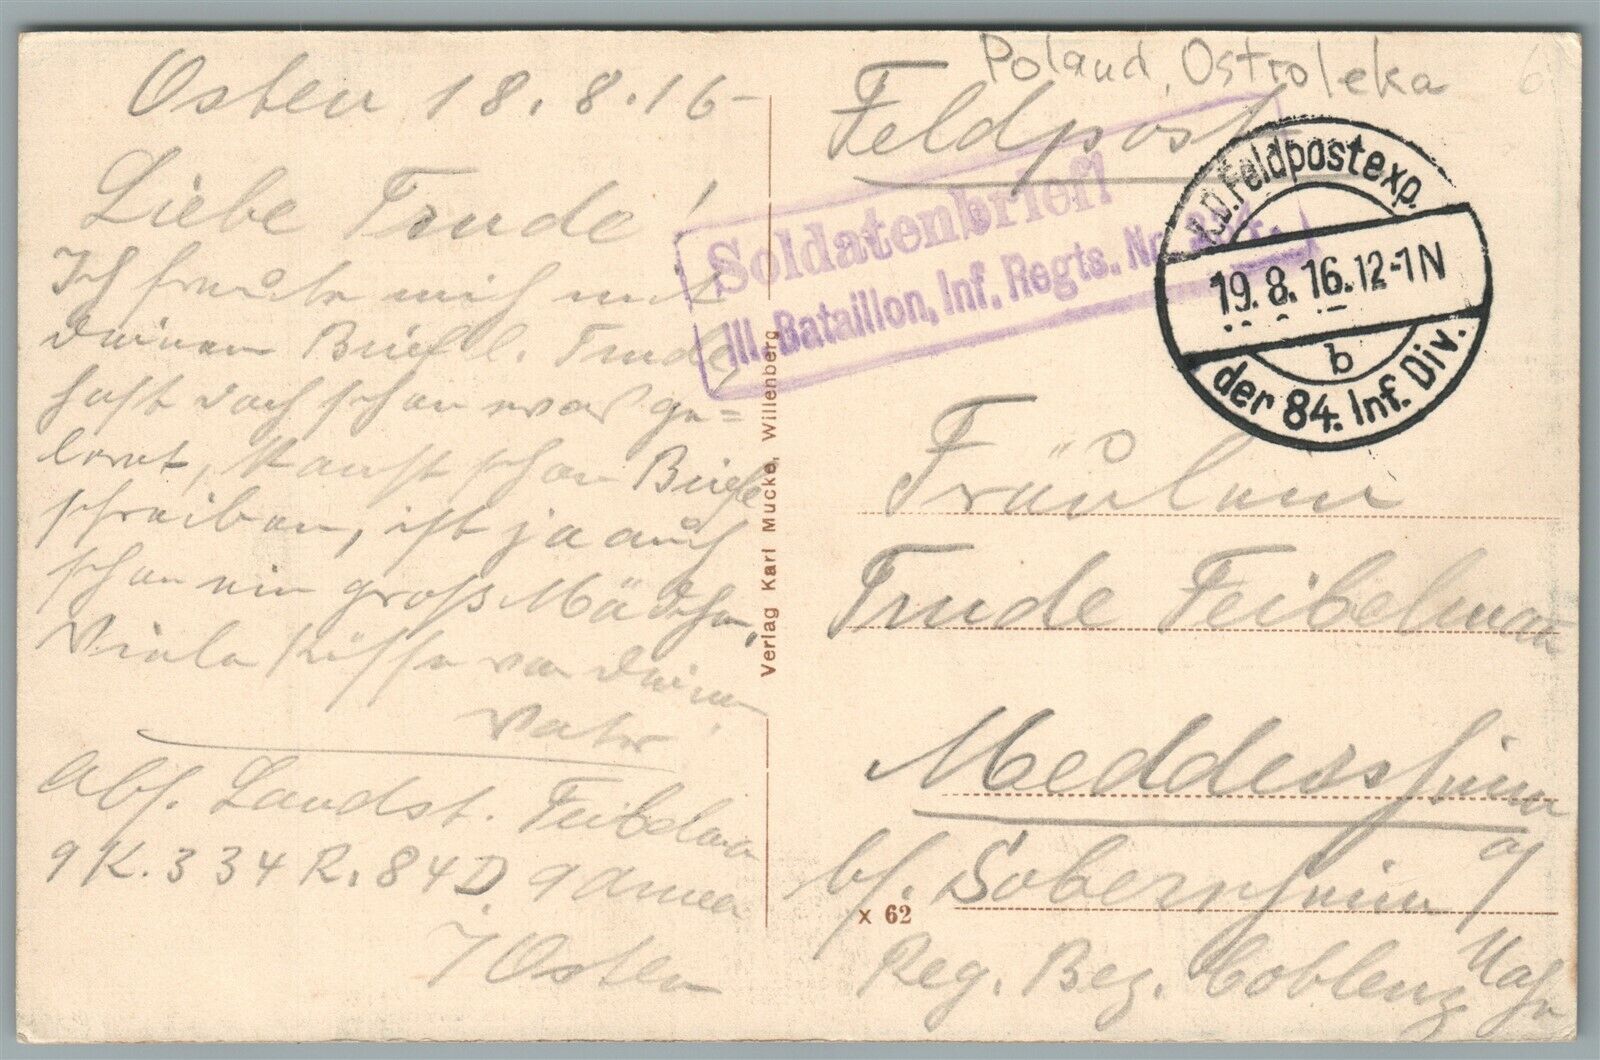 Osten 18.8.16-
Liebe Trude!
Ich freute mich mit
deinem Briefl. Trude
hast doch schon was ge=
lernt, kannst schon Briefe
schreiben, ist ja auch
schon ein großes Mädchen,
Viele Küsse von deinem
Vater
Abs. Landst. Feibelman
9 K. 334 R. 84 D. 9 Armee
i/Osten
Verlag Karl Mucke, Willenberg
Poland, Ostroleka
6
Feldpost
Soldatenbrief!
III. Bataillon, Inf. Regts. Nr. 334.
K.D.Feldpostexp.
19.8.16.12-1N
b
der 84. Inf. Div.
Fräulein
Trude Feibelman
Meddersheim
bs. Sobernheim a/
Nahe
x 62
Reg. Bez. Coblenz